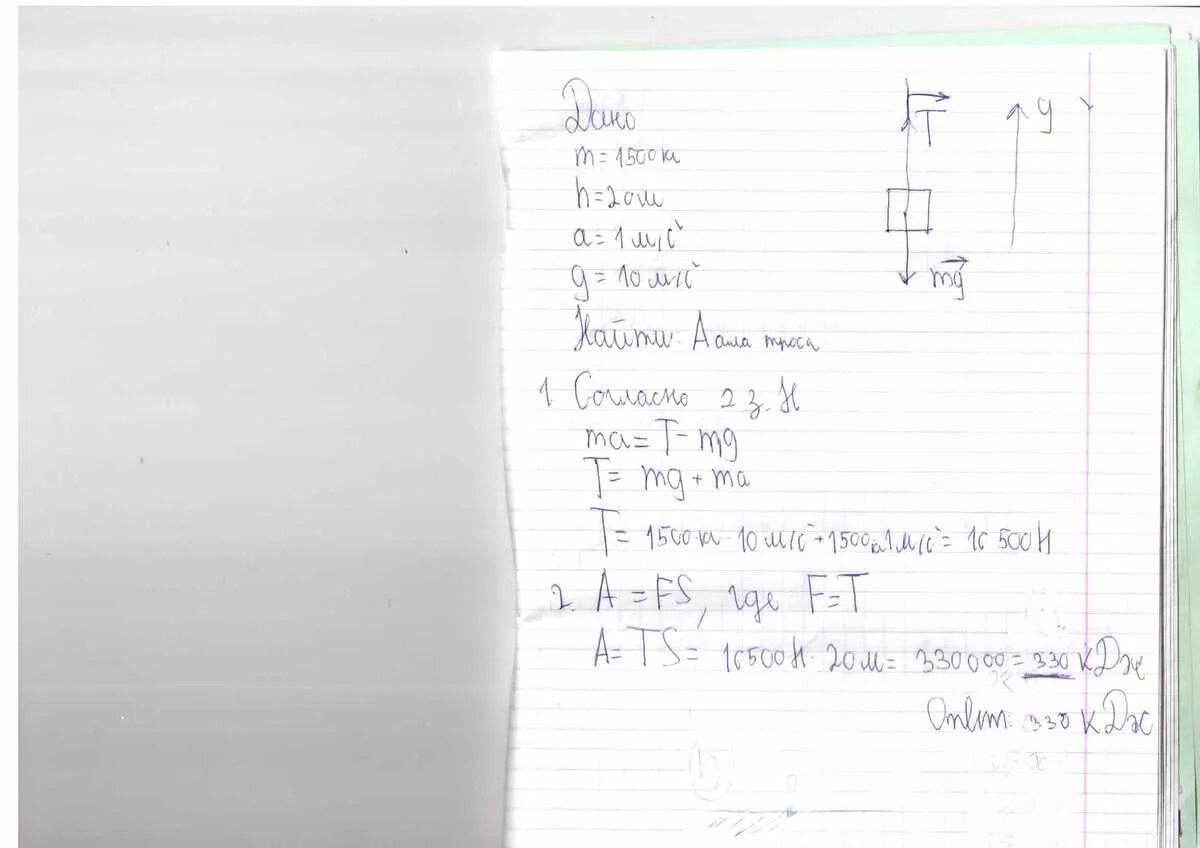 Дано
m = 1500 кг
h = 20 м
a = 1 м/с²
g = 10 м/с²
Найти: A силы троса
T
y
mg
1. Согласно 2 з. Н
ma = T - mg
T = mg + ma
T = 1500 кг · 10 м/с² + 1500 кг 1 м/с² = 16 500 Н
2. A = FS, где F = T
A = TS = 16500 Н · 20 м = 330 000 = 330 кДж
Ответ: 330 кДж